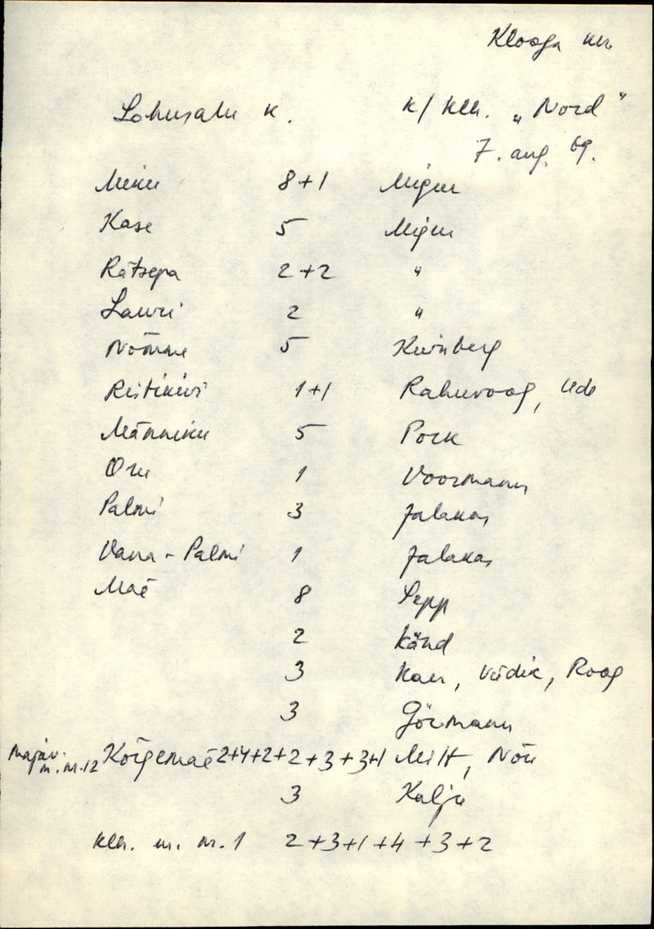 Klooga kn
Lohusalu k. k/ klh. „Nord"
7. aug. 69.
8+1
Kase 5
Rätsepa 2+2 "
Lauri 2 "
Nõmme 5 Kurnberg
Ristikivi 1+1 Rahuvoog,
Männiku 5 Pork
Oru 1 Voormann
Palmi 3 Jalakas
Vana-Palmi 1 Jalakas
Mäe 8 Sepp
2 Känd
3 Kau, Viidik, Roog
3 Görmann
majav. m. nr. 12 Kõrgemäe 2+4+2+2+3+3+1 Milt,
3 Kalju
klh. m. nr. 1 2+3+1+4+3+2